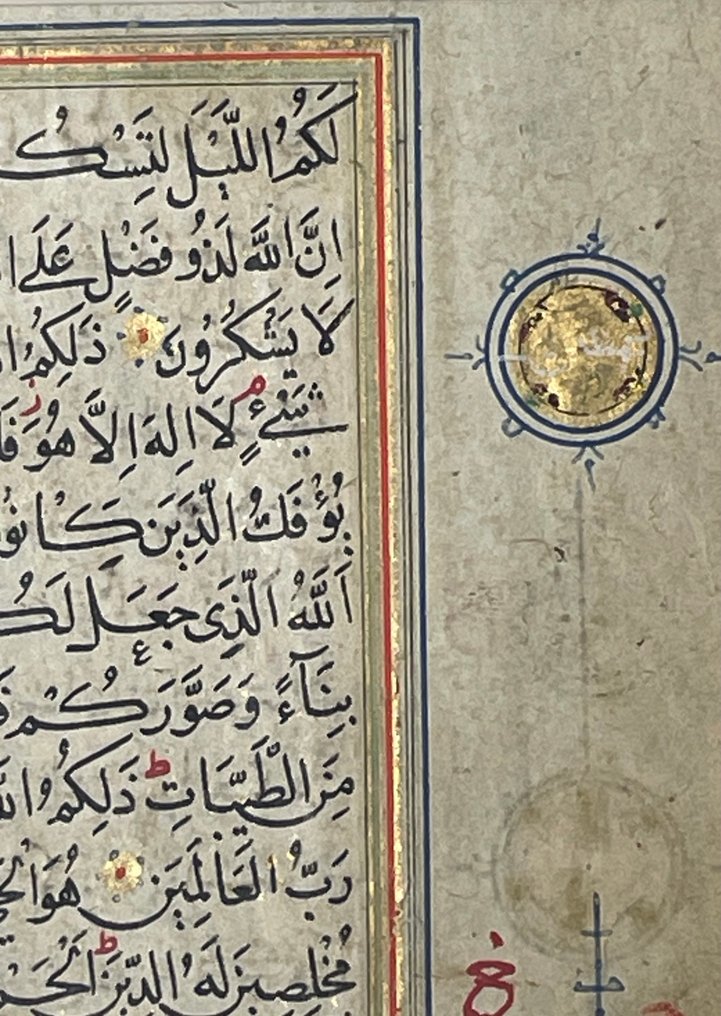 لَكُمُ اللَّيْلَ لِتَسْكُ
اِنَّ اللّٰهَ لَذُو فَضْلٍ عَلَى ا
لَا يَشْكُرُونَ ذٰلِكُمُ ا
شَيْءٍ م لَا اِلٰهَ اِلَّا هُوَ ز فَ
يُؤْفَكُ الَّذِينَ كَانُو
اَللّٰهُ الَّذِى جَعَلَ لَكُ
بِنَاءً وَصَوَّرَكُمْ فَ
مِنَ الطَّيِّبَاتِ ط ذٰلِكُمُ اللّٰ
رَبُّ الْعَالَمِينَ هُوَ الْحَ
مُخْلِصِينَ لَهُ الدِّينَ ط اَلْحَمْ